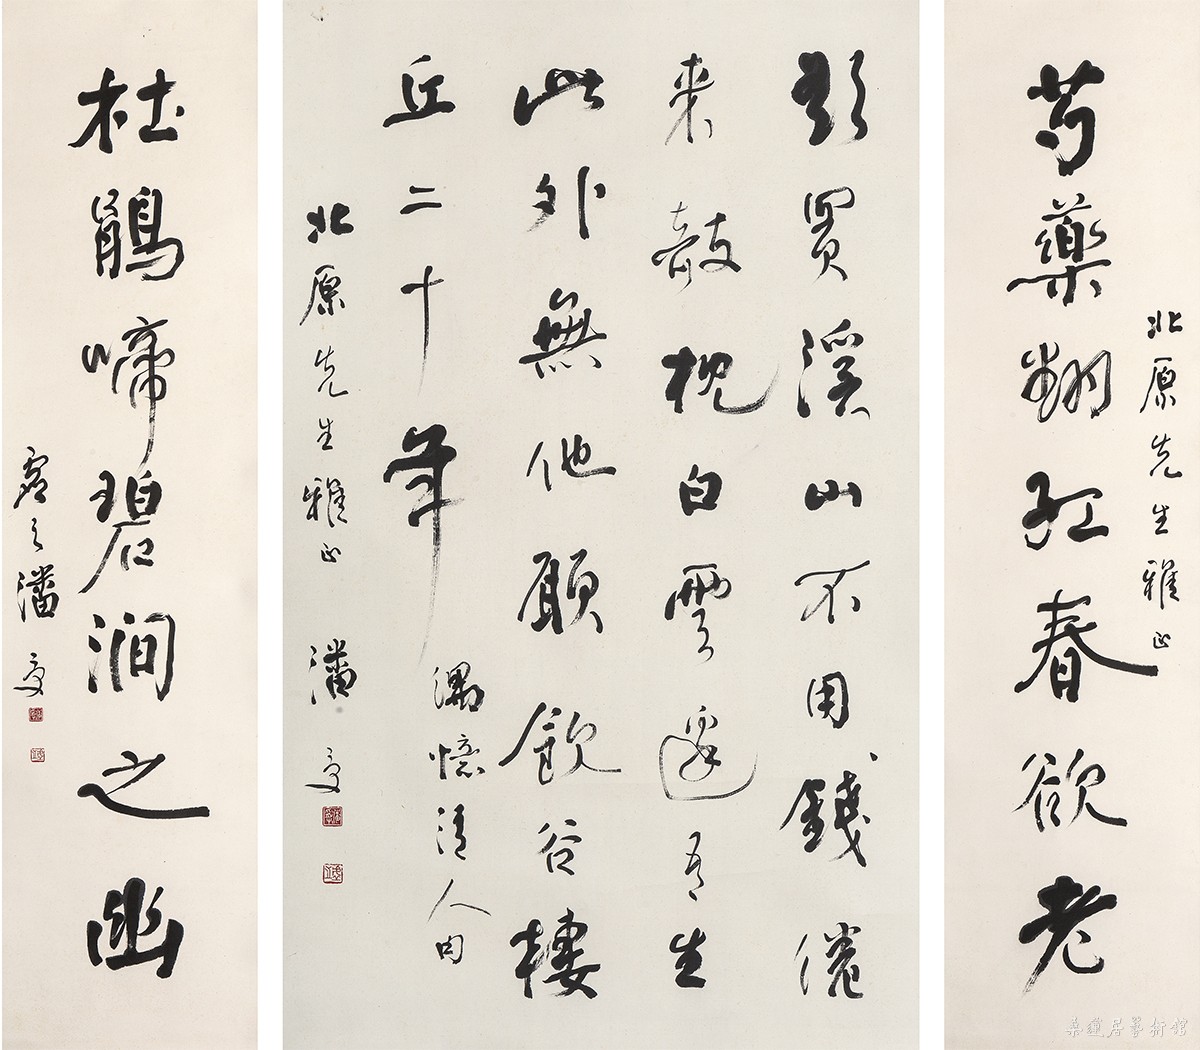 北原先生雅正
芍藥翻紅春欲老
買溪山不用錢倦
來欹枕白雲邊吾生
此外無他願飲谷棲
丘二十年
偶憶清人句
北原先生雅正 潘受
杜鵑啼碧澗之幽
虛之潘受
居藝術館